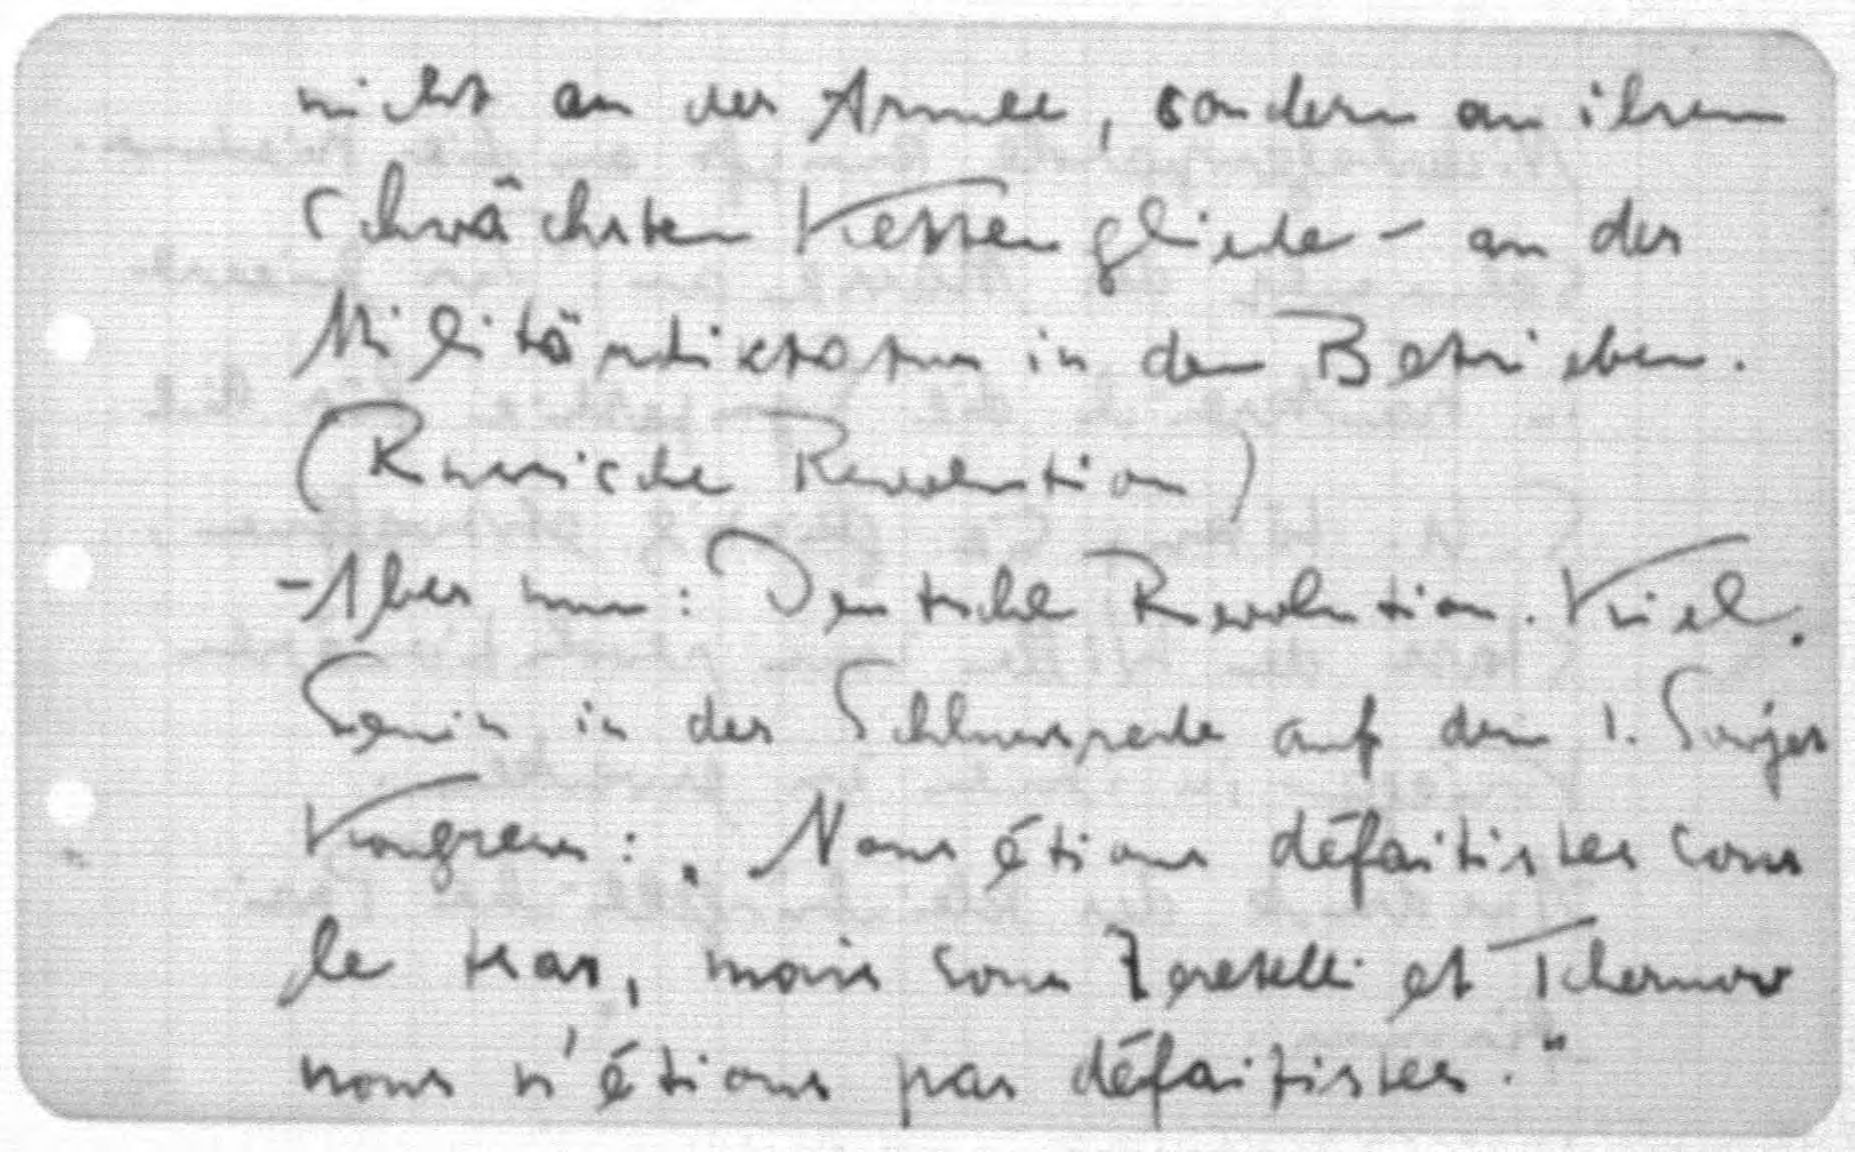 nicht an der Armee, sondern an ihrem
schwächsten Kettengliede - an der
Militärdictatur in den Betrieben.
(Russische Revolution)
- Aber nun: Deutsche Revolution. Kiel.
Lenin in der Schlussrede auf dem 1. Sowjet
Kongress: „Nous étions défaitistes sous
le tsar, mais sous Zeretelli et Tchernov
nous n'étions pas défaitistes."